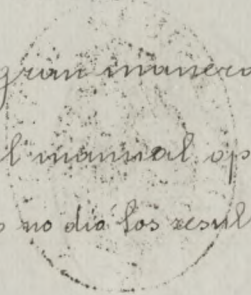 gran manera
l manual op
no dió los resul